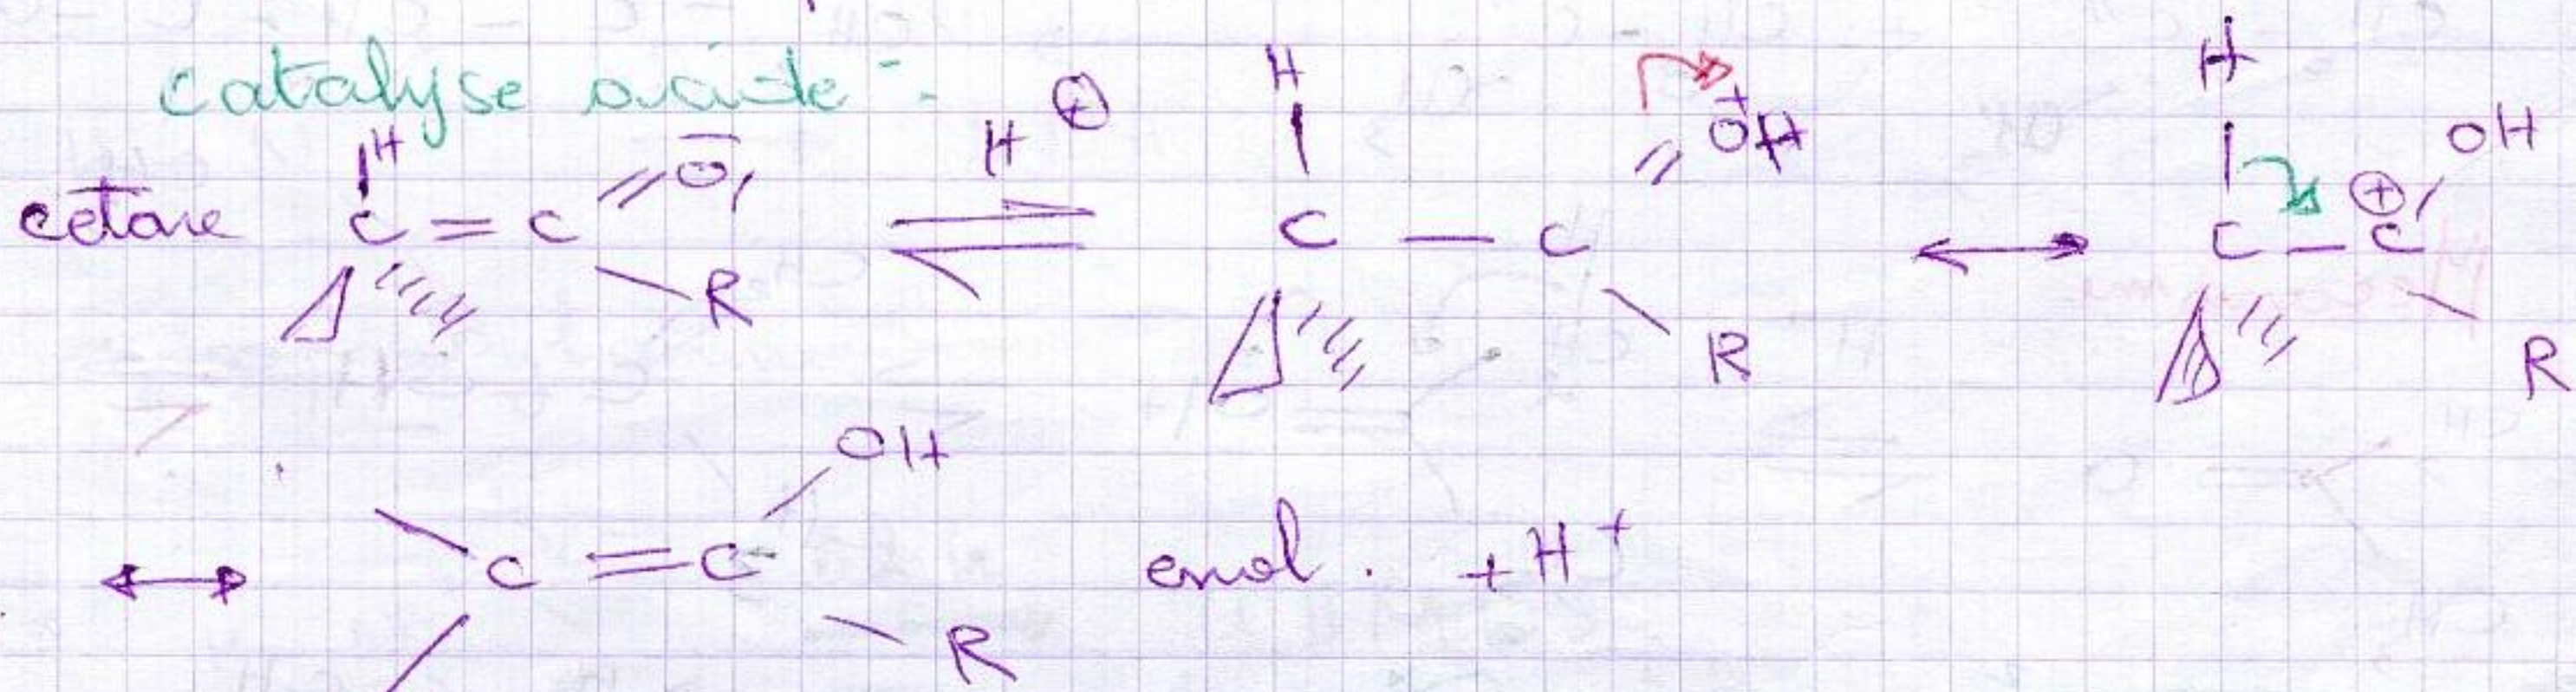 catalyse acide :
cétone H C = C = O R ⇌ H ⊕ H C — C = O⁺H R ↔ H C — C ⊕ OH R
↔ C = C OH R enol . + H⁺